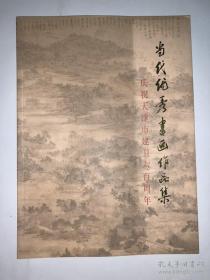 当代优秀書画作品集
庆祝天津市建
百周年
孔夫子旧书网